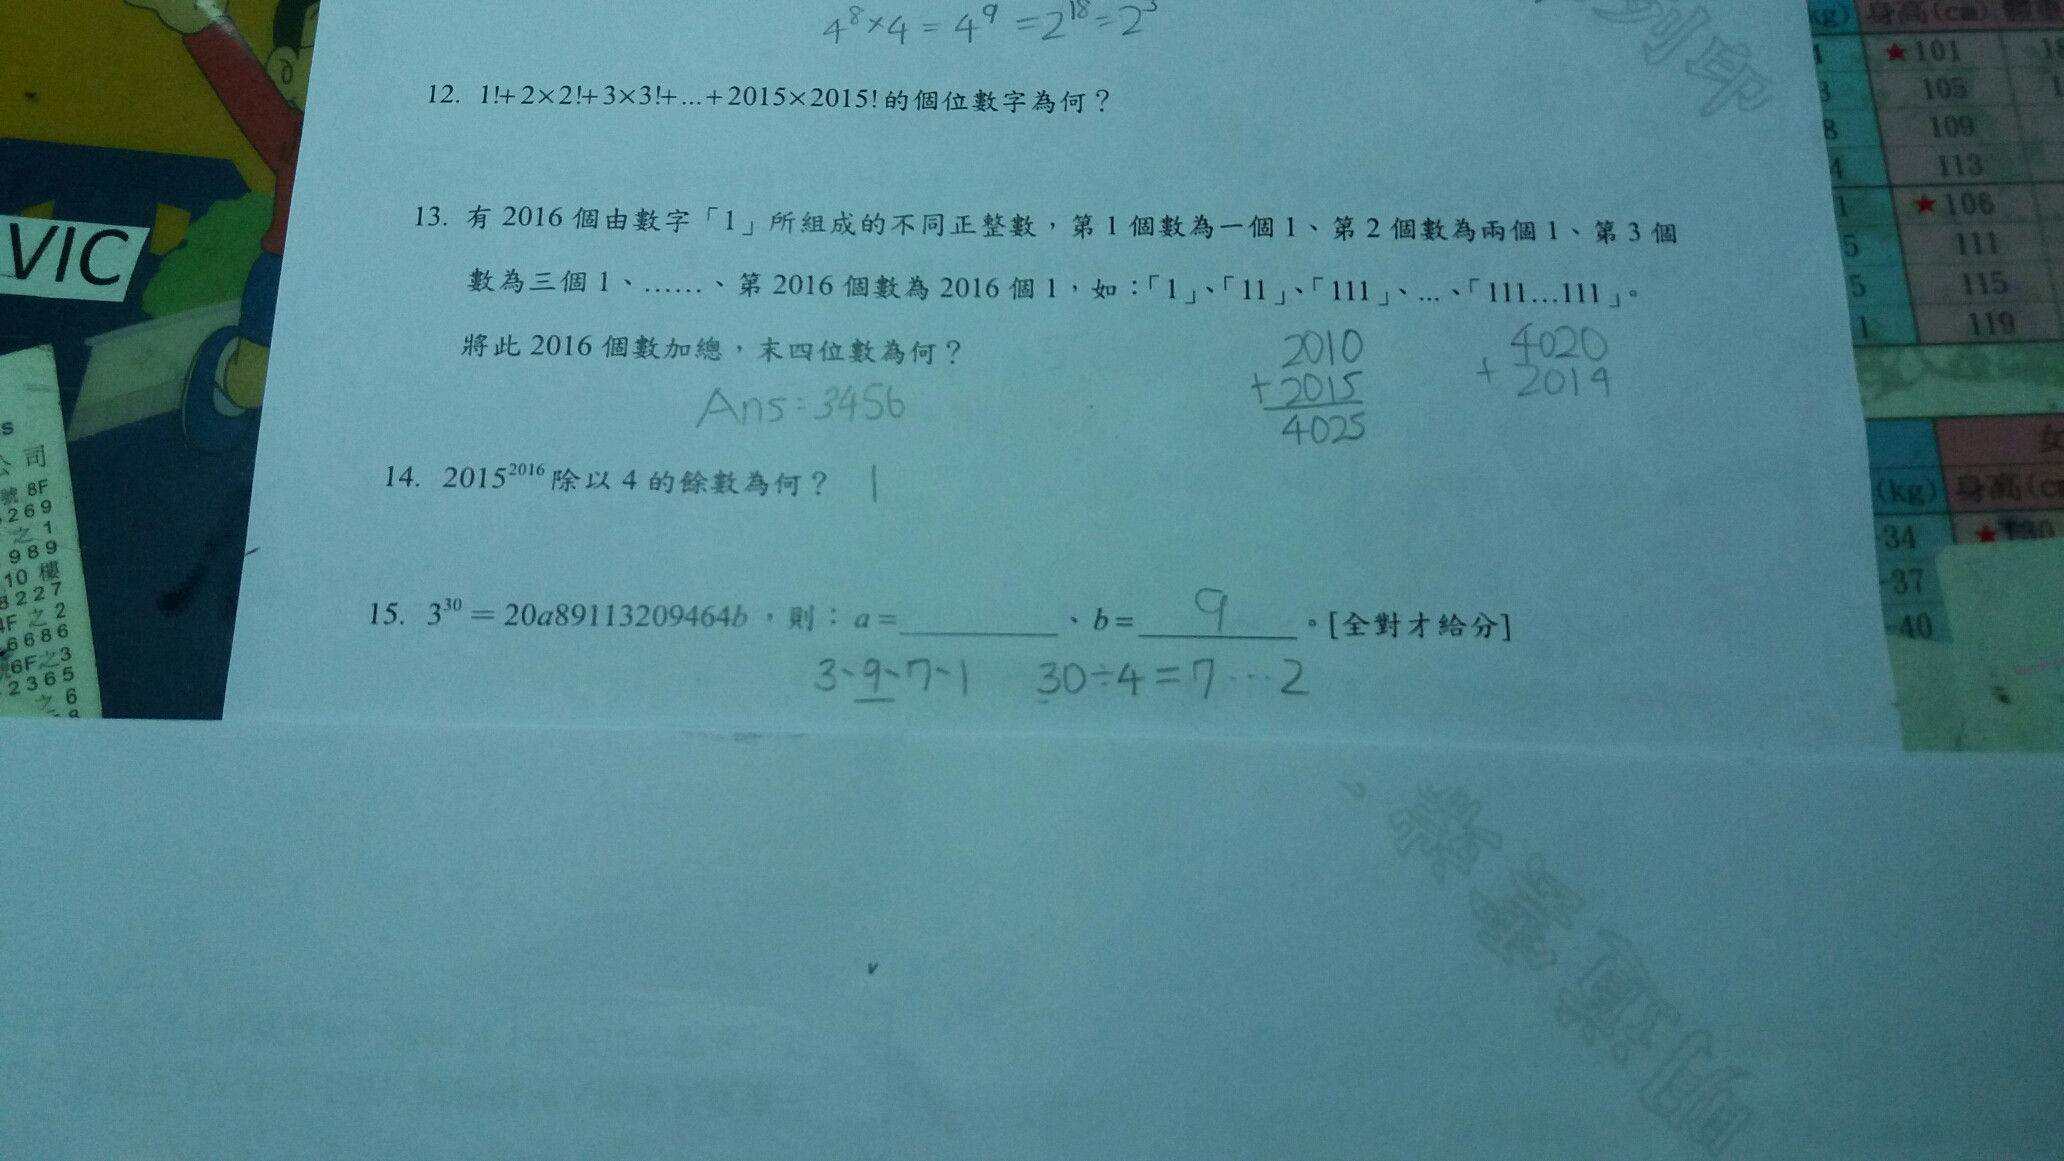 4⁸×4=4⁹=2¹⁸=2³
12. 1!+2×2!+3×3!+...+2015×2015!的個位數字為何?
13. 有 2016 個由數字「1」所組成的不同正整數,第 1 個數為一個 1、第 2 個數為兩個 1、第 3 個
數為三個 1、……、第 2016 個數為 2016 個 1,如:「1」、「11」、「111」、...、「111...111」。
將此 2016 個數加總,末四位數為何?
Ans:3456
2010
+2015
4025
4020
+ 2014
14. 2015²⁰¹⁶除以 4 的餘數為何? 1
15. 3³⁰=20a89113209464b,則:a=________、b=___9___。[全對才給分]
3、9、7、1 30÷4=7…2
列印
VIC
公司
號 8F
269
之 1
989
10 樓
8227
4F 之 2
6686
6F之3
2365
之 6
kg) 身高(cm)
★101
105
109
113
★106
111
115
119
女
(kg) 身高(c
-34
-37
-40